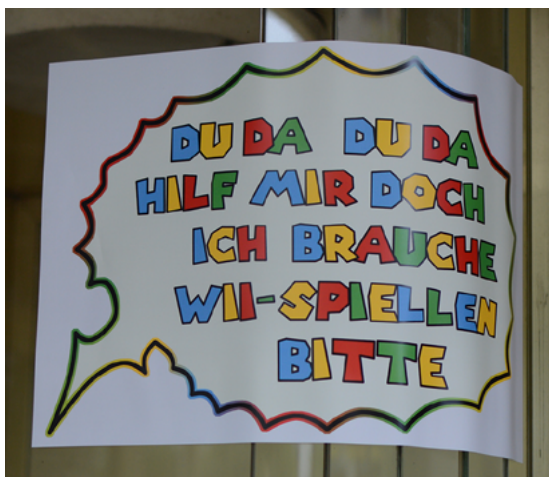 DU DA DU DA
HILF MIR DOCH
ICH BRAUCHE
WII-SPIELLEN
BITTE